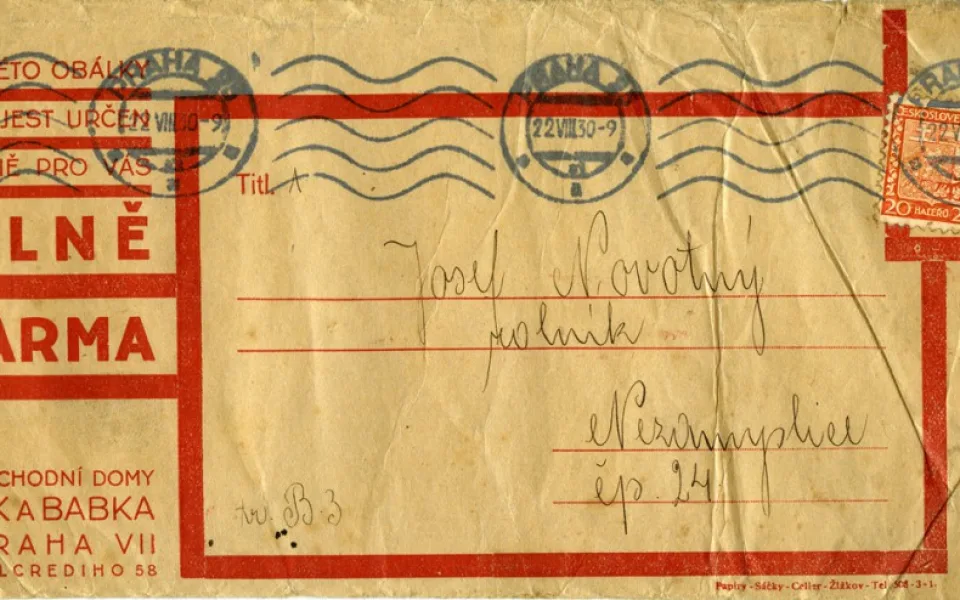 ÉTO OBÁLKY
JEST URČEN
NĚ PRO VÁS
LNĚ
ARMA
CHODNÍ DOMY
K A BABKA
RAHA VII
LCREDIHO 58
PRAHA 25
22 VIII 30-9
a
PRAHA 25
22 VIII 30-9
a
ČESKOSLOVE
20 HALÉŘŮ 2
Titl.
Josef Novotný
rolník
Nezamyslice
čp. 24
tr. B-3
Papíry - Sáčky - Celler - Žižkov - Tel.